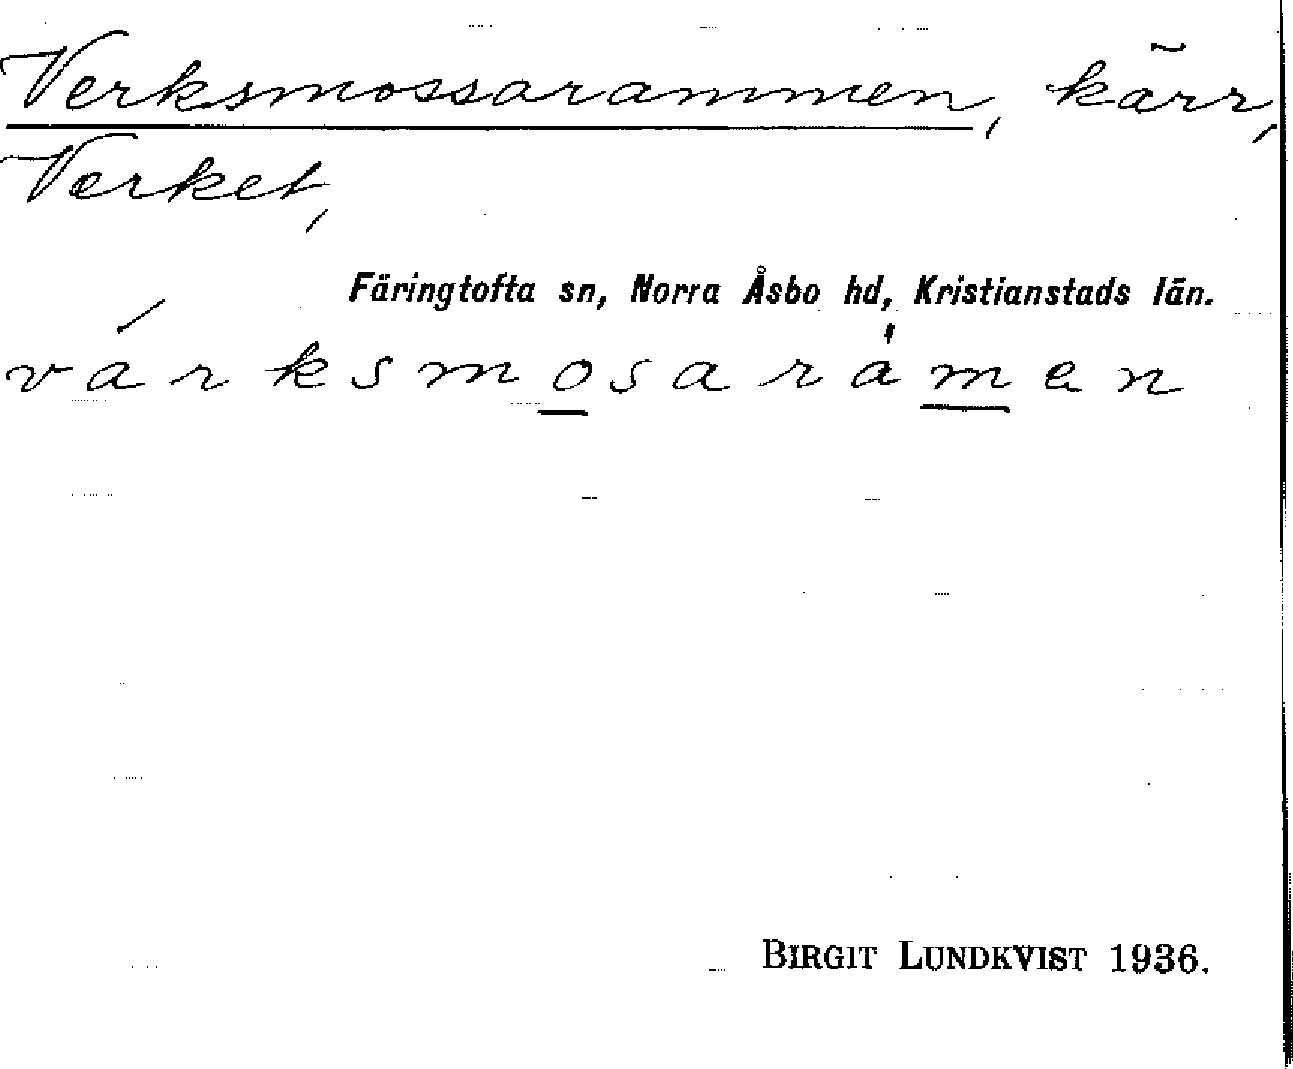 Verksmossarammen, kärr,
Verket,
Färingtofta sn, Norra Åsbo hd, Kristianstads län.
várksmosaràmen
BIRGIT LUNDKVIST 1936.